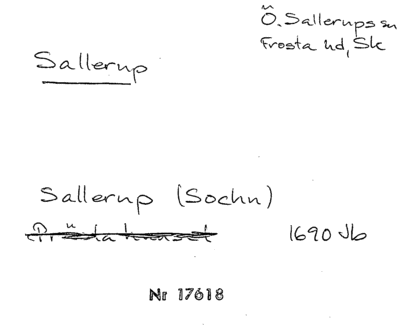 Ö. Sallerups sn
Frosta hd, Sk
Sallerup
Sallerup (Sochn)
1690 Jb
Nr 17618